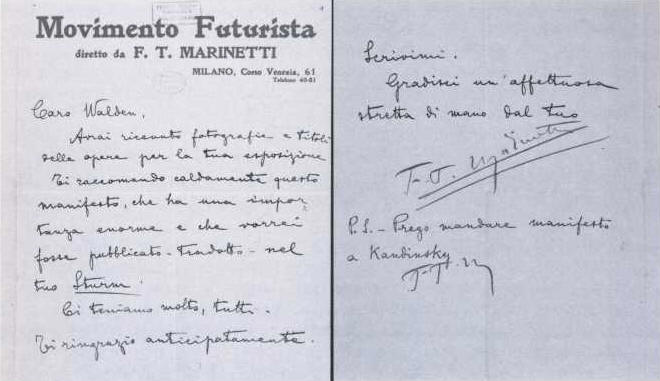 Movimento Futurista
diretto da F. T. MARINETTI
MILANO, Corso Venezia, 61
Telefono 40-81
Caro Walden,
Avrai ricevuto fotografie e titoli
delle opere per la tua esposizione
Ti raccomando caldamente questo
manifesto, che ha una impor-
tanza enorme e che vorrei
fosse pubblicato - tradotto - nel
tuo Sturm.
Ci teniamo molto, tutti.
Ti ringrazio anticipatamente.
Scrivimi.
Gradisci un'affettuosa
stretta di mano dal tuo
F. T. Marinetti
P.S. - Prego mandare manifesto
a Kandinsky
F. T. M